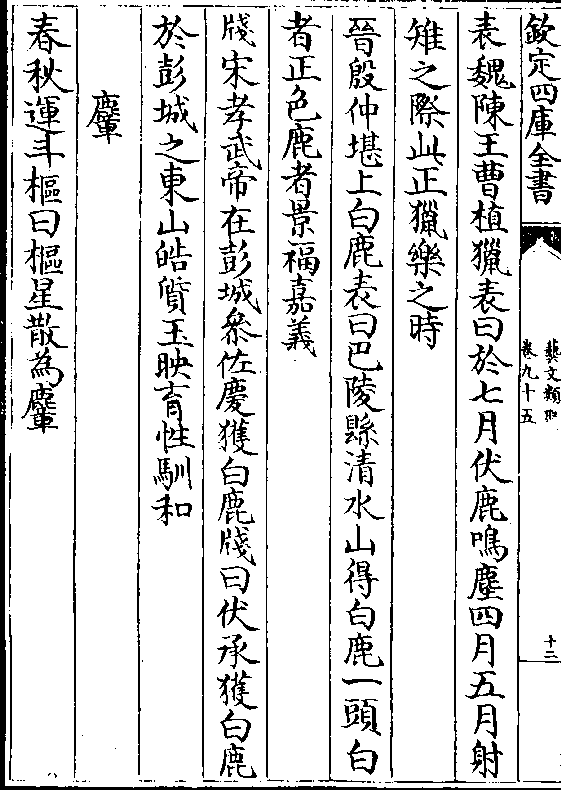 欽定四庫全書
藝文類聚
卷九十五
十三
表魏陳王曹植獵表曰於七月伏鹿鳴塵四月五月射
雉之際此正獵樂之時
晉殷仲堪上白鹿表曰巴陵縣清水山得白鹿一頭白
者正色鹿者景福嘉義
牋宋孝武帝在彭城叅佐慶獲白鹿牋曰伏承獲白鹿
於彭城之東山皓質玉映育性馴和
麞
春秋運斗樞曰樞星散為麞